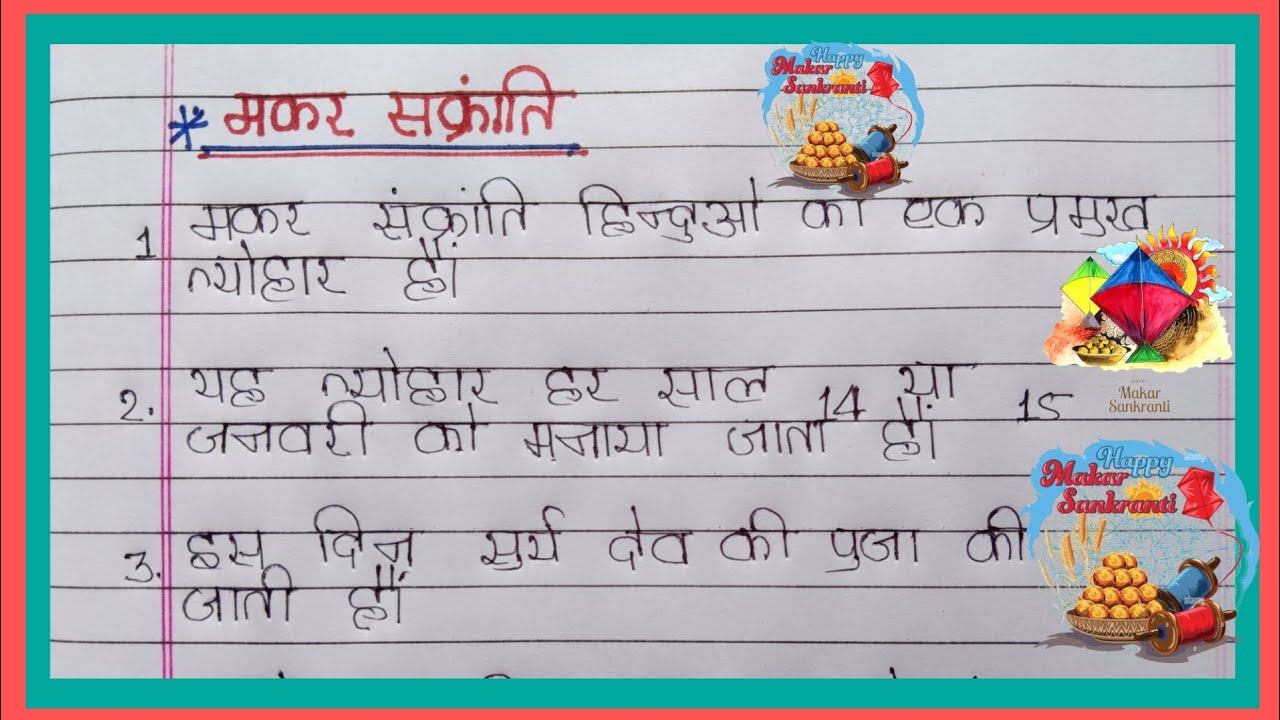 * मकर सक्रांति
Happy
Makar
Sankranti
1 मकर संक्रांति हिन्दुओ का एक प्रमुख
त्योहार हैं।
2. यह त्योहार हर साल 14 या 15
जनवरी को मनाया जाता हैं।
Makar
Sankranti
3. इस दिन सुर्य देव की पुजा की
जाती हैं।
Happy
Makar
Sankranti